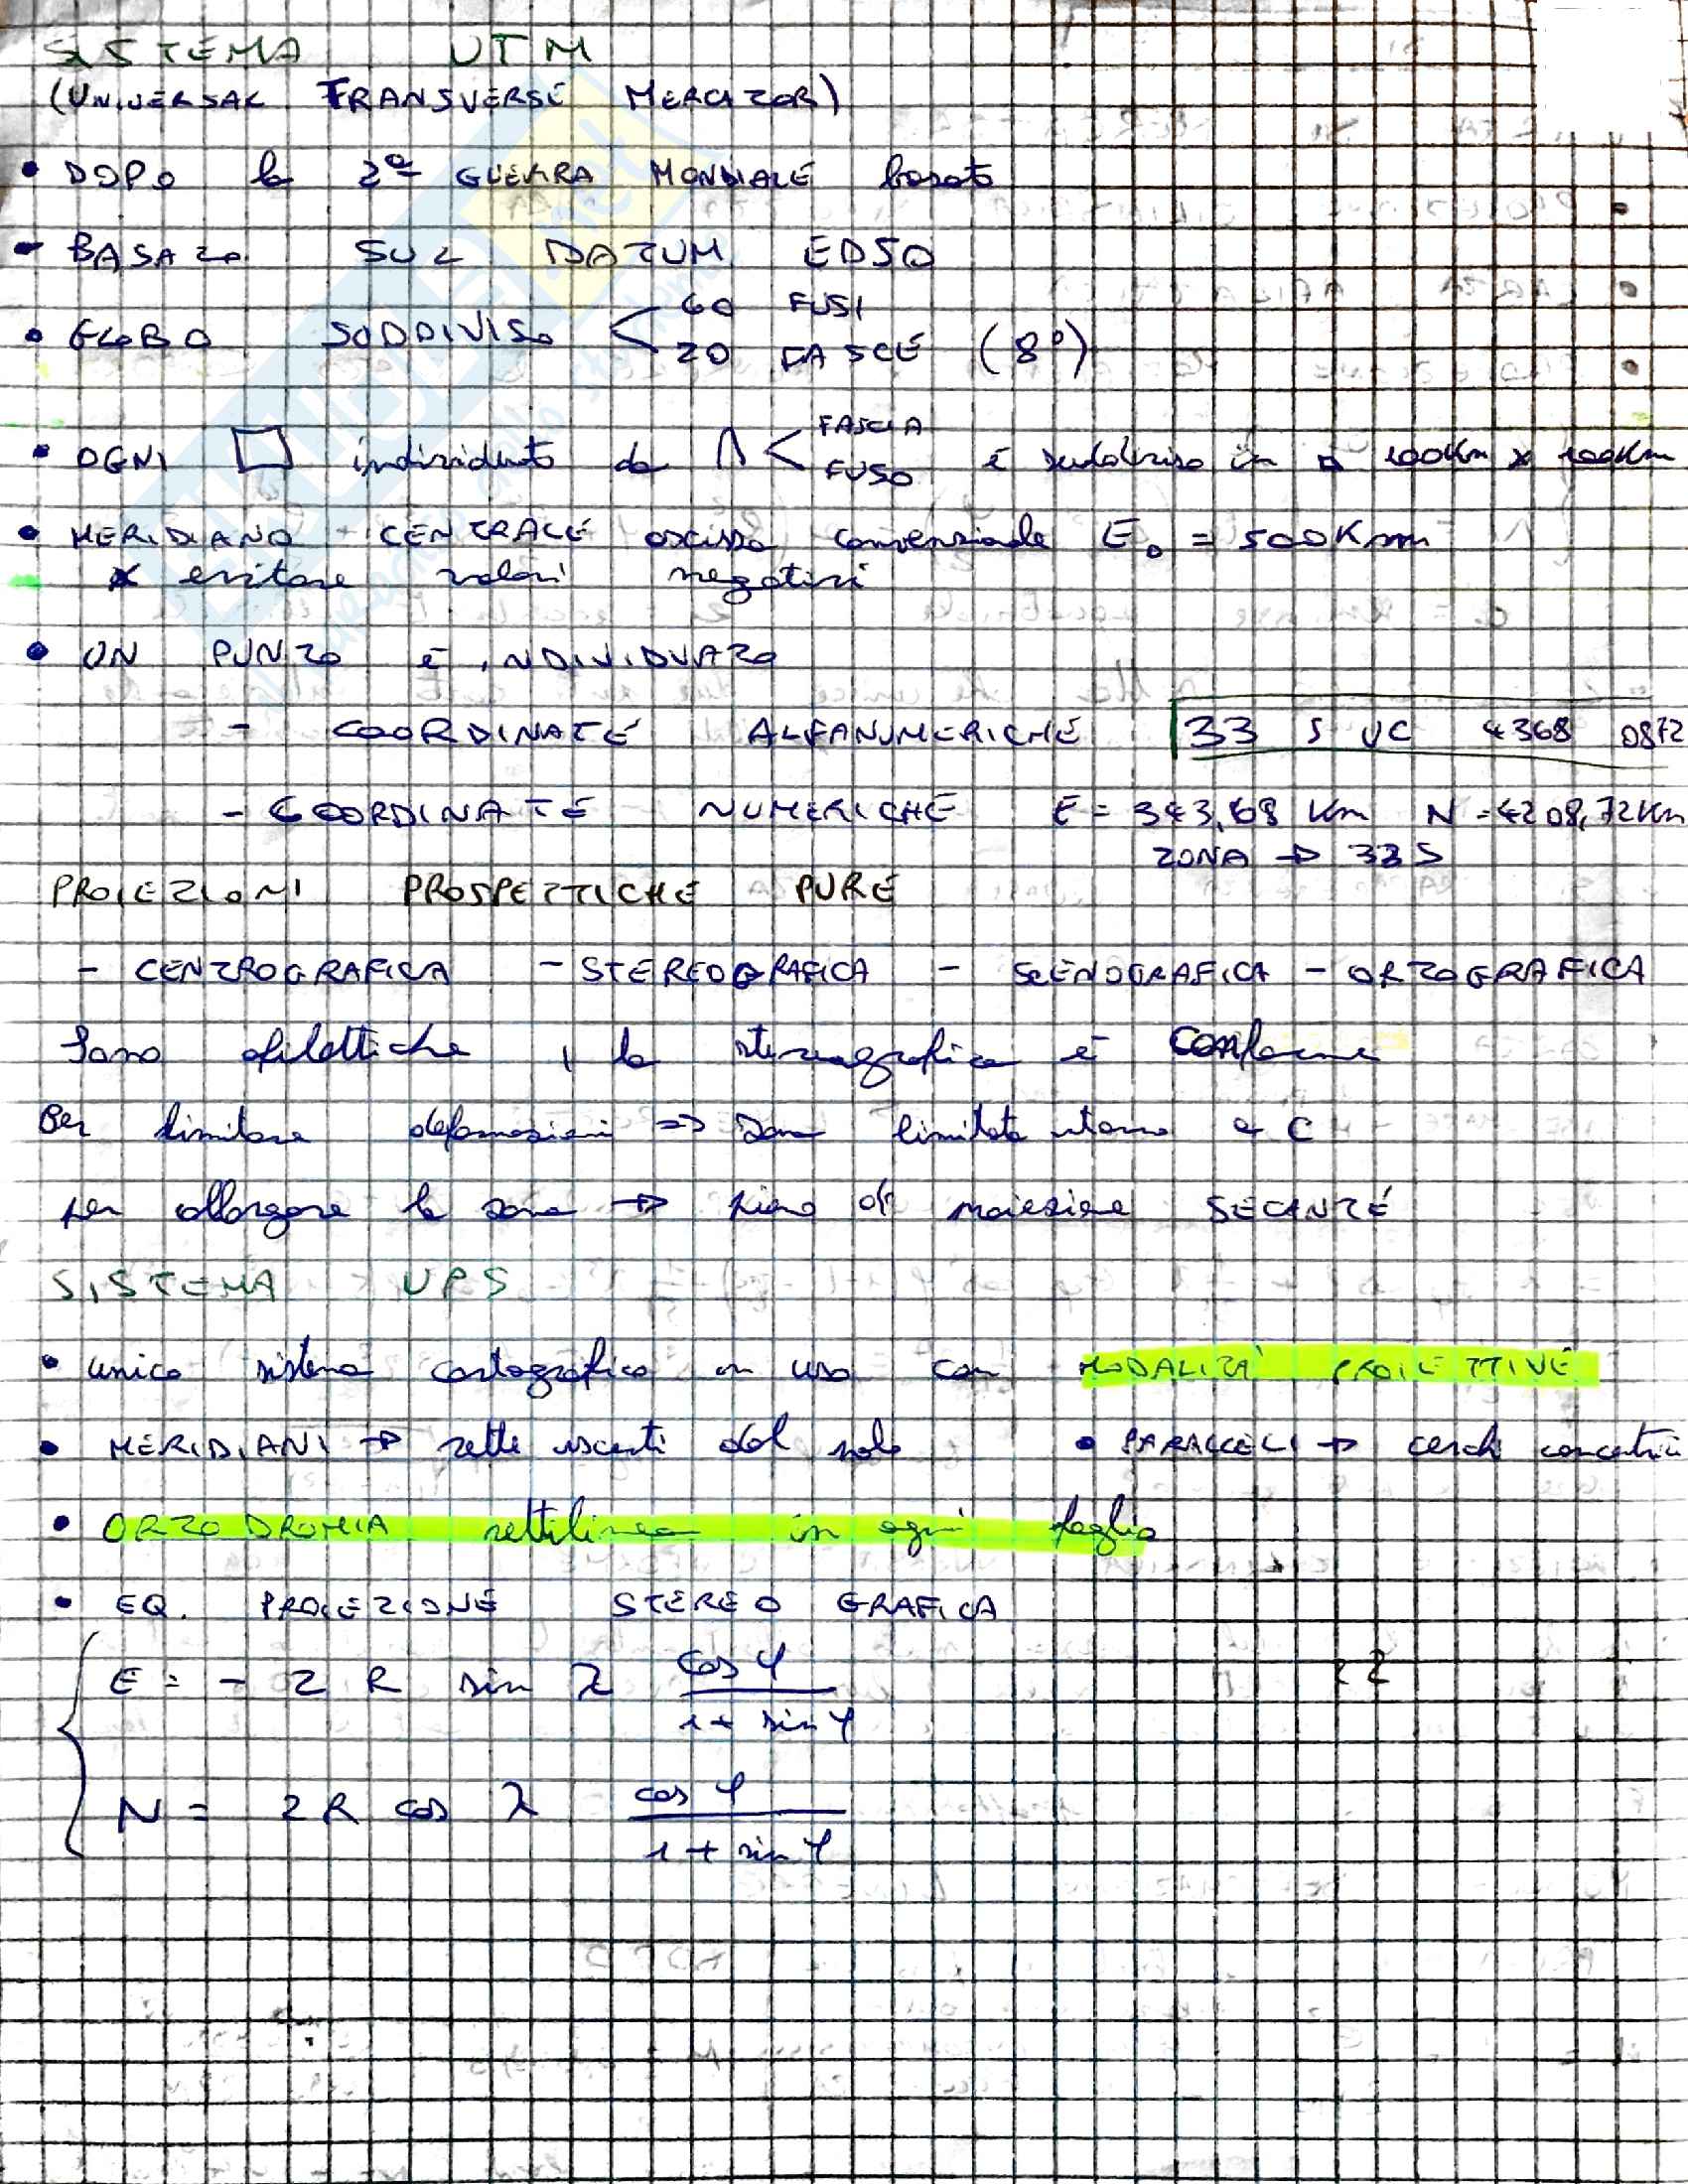 SISTEMA UTM
(UNIVERSAL TRANSVERSE MERCATOR)
• DOPO la 2ª GUERRA MONDIALE basato
• BASATO SUL DATUM ED50
• GLOBO SUDDIVISO < 60 FUSI
20 FASCE (8°)
• OGNI □ individuato da ∩ < FASCIA
FUSO è suddiviso in □ 100Km x 100Km
• MERIDIANO CENTRALE ascissa convenzionale E₀ = 500Km
x evitare valori negativi
• UN PUNTO È INDIVIDUATO
- COORDINATE ALFANUMERICHE 33 S UC 4368 0872
- COORDINATE NUMERICHE E = 343,68 Km N = 4208,72Km
ZONA → 33S
PROIEZIONI PROSPETTICHE PURE
- CENTROGRAFICA - STEREOGRAFICA - SCENOGRAFICA - ORTOGRAFICA
Sono afilattiche, la stereografica è conforme
Per limitare deformazioni => zona limitata intorno a C
per allargare la zona → piano di proiezione SECANTE
SISTEMA UPS
• unico sistema cartografico in uso con MODALITÀ PROIETTIVE
• MERIDIANI → rette uscenti dal polo • PARALLELI → cerchi concentrici
• ORTODROMIA rettilinea in ogni foglio
• EQ. PROIEZIONE STEREOGRAFICA
E = - 2 R sin λ cos φ / 1 + sin φ
N = 2 R cos λ cos φ / 1 + sin φ